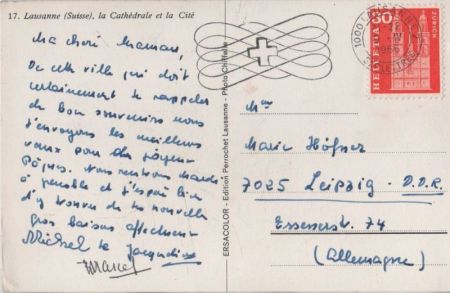 17. Lausanne (Suisse), la Cathédrale et la Cité
Ma chère Maman,
De cette ville qui doit
certainement te rappeler
de bons souvenirs nous
t'envoyons les meilleurs
vœux pour des joyeuses
Pâques. Nous rentrons mardi
à Grenoble et j'espère bien
d'y trouver de tes nouvelles
Gros baisers affectueux
Michel et Jacqueline
Marcel
ERSACOLOR - Edition Perrochet Lausanne - Photo
HELVETIA
30
ZÜRICH
1000
Mme
Marie Höfner
7025 Leipzig - D.D.R.
Essenerst. 74
(Allemagne)